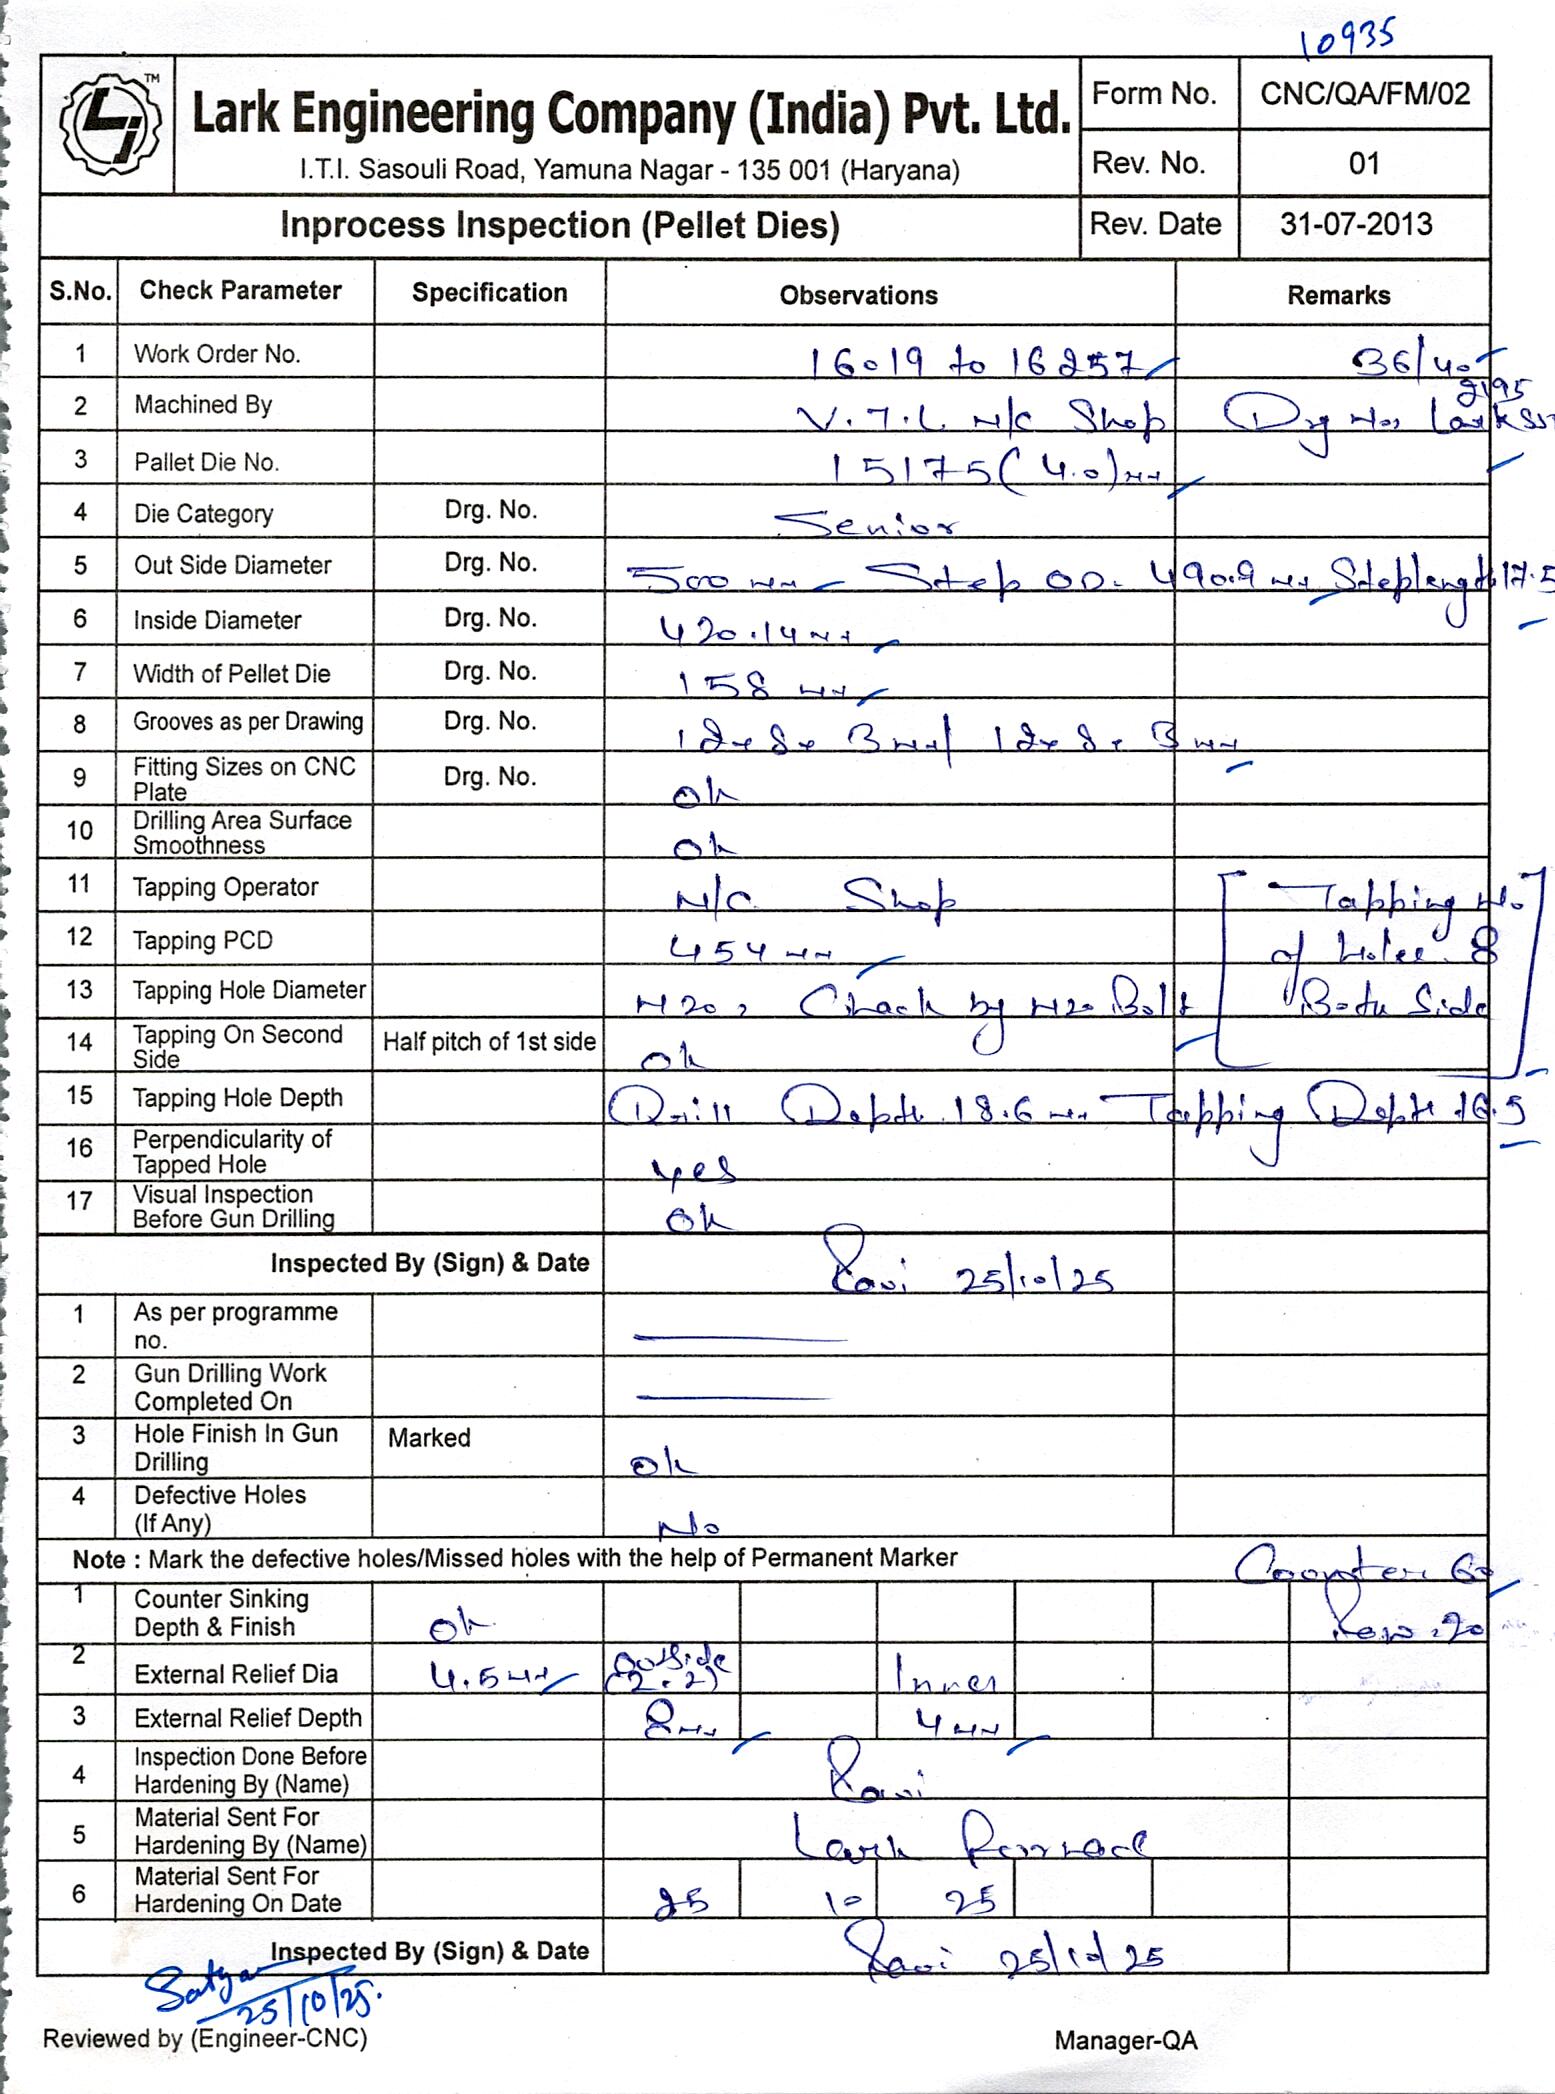 10935
TM
Lark Engineering Company (India) Pvt. Ltd.
I.T.I. Sasouli Road, Yamuna Nagar - 135 001 (Haryana)
Form No. CNC/QA/FM/02
Rev. No. 01
Inprocess Inspection (Pellet Dies) Rev. Date 31-07-2013
S.No. Check Parameter Specification Observations Remarks
1 Work Order No. 16019 to 16257 36/40
2 Machined By V.T.L M/C Shop Drg No. Lark 2195
3 Pallet Die No. 15175 (4.0) mm
4 Die Category Drg. No. Senior
5 Out Side Diameter Drg. No. 500 mm Step OD. 490.9 mm Step length 17.5
6 Inside Diameter Drg. No. 420.14 mm
7 Width of Pellet Die Drg. No. 158 mm
8 Grooves as per Drawing Drg. No. 12x8x3 mm/12x8x3 mm
9 Fitting Sizes on CNC Plate Drg. No. Ok
10 Drilling Area Surface Smoothness Ok
11 Tapping Operator M/C Shop Tapping No.
12 Tapping PCD 454 mm of Holes 8
13 Tapping Hole Diameter M20, Check by M20 Bolt Both Side
14 Tapping On Second Side Half pitch of 1st side Ok
15 Tapping Hole Depth Drill Depth 18.6 mm Tapping Depth 16.5
16 Perpendicularity of Tapped Hole yes
17 Visual Inspection Before Gun Drilling Ok
Inspected By (Sign) & Date Ravi 25/10/25
1 As per programme no.
2 Gun Drilling Work Completed On
3 Hole Finish In Gun Drilling Marked Ok
4 Defective Holes (If Any) No
Note : Mark the defective holes/Missed holes with the help of Permanent Marker Counter 60
1 Counter Sinking Depth & Finish Ok Row. 20
2 External Relief Dia 4.5 mm Outside (2.2) Inner
3 External Relief Depth 8 mm 4 mm
4 Inspection Done Before Hardening By (Name) Ravi
5 Material Sent For Hardening By (Name) Lark
6 Material Sent For Hardening On Date 25 10 25
Inspected By (Sign) & Date Ravi 25/10/25
Satyam
25/10/25.
Reviewed by (Engineer-CNC) Manager-QA